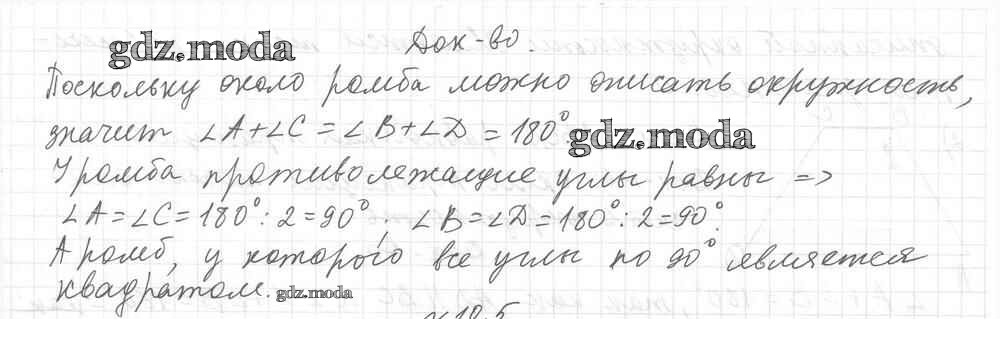 gdz.moda Док-во.
Поскольку около ромба можно описать окружность,
значит ∠A+∠C = ∠B+∠D = 180° gdz.moda
У ромба противолежащие углы равны =>
∠A=∠C=180°:2=90°; ∠B=∠D=180°:2=90°.
А ромб, у которого все углы по 90° является
квадратом. gdz.moda